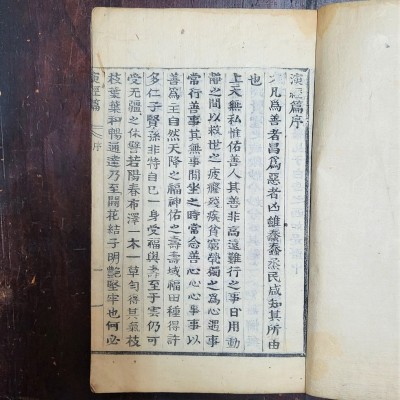 演經篇序
夫凡爲善者昌爲惡者凶雖蠢蠢烝民咸知其所由
也
上天無私惟佑善人其善非高遠難行之事日用動
靜之間以救世之疲癃殘疾貧窮煢獨之爲心遇事
常行善事其無事閒坐之時常念善心心心事事以
善爲主自然天降之福神佑之壽壽域福田種得許
多仁子賢孫非特自己一身受福與壽至于雲仍可
受無疆之休譬若陽春布澤一木一草勻得其氣枝
枝葉葉和暢通達乃至開花結子明艷堅牢也何必
演經篇
序
一